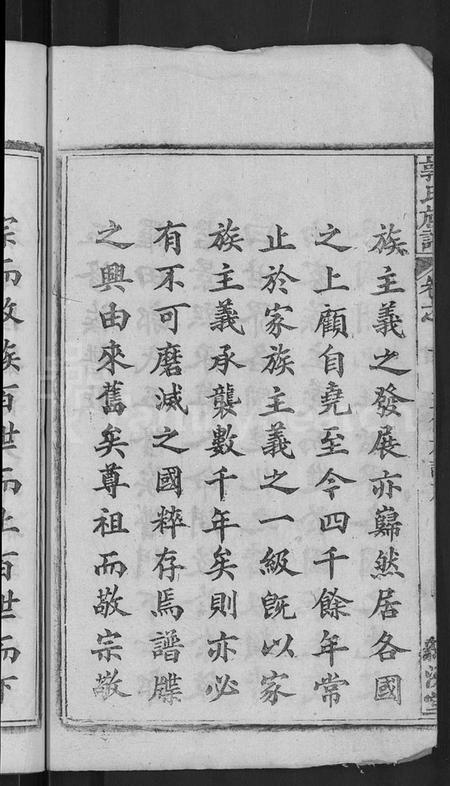 郭氏族譜 卷一
族主義之發展亦巋然居各國
之上顧自堯至今四千餘年常
止於家族主義之一級旣以家
族主義承襲數千年矣則亦必
有不可磨滅之國粹存焉譜牒
之興由來舊矣尊祖而敬宗敬
宗而收族百世而上百世而下